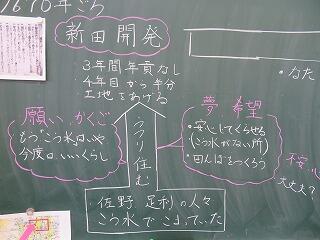 1670年ごろ
新田開発
・3年間年貢なし
・4年目から半分
・土地をあげる
願い・かくご
もう"こう水"はいや
今度こそいいくらし
うつり住む
夢・希望
・安心してくらせる
(こう水がない所)
・田んぼをつくろう
佐野 足利の人々
こう水でこまっていた
・なた
不安
大丈夫?